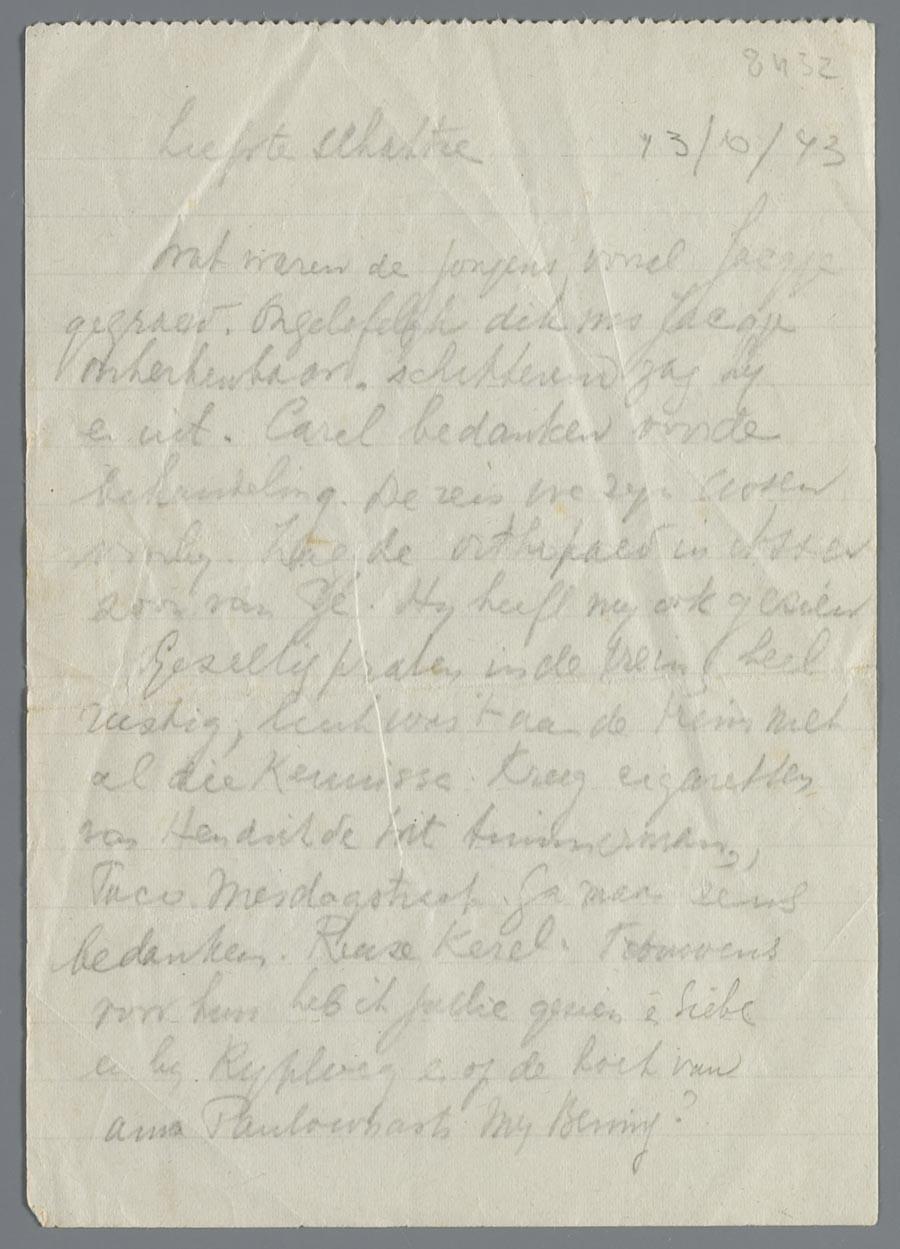 8432
Liefste schattie 13/10/43
Wat waren de jongens vooral Jacqje
gegroeid. Ongelofelijk dik was Jacqje
onherkenbaar. Schitterend zag hij
er uit. Carel bedanken voor de
behandeling. De reis we zijn Assen
voorbij. de orthopaed in Assen
zoon van Hij heeft mij ook gezien
Gezellig praten in de trein, heel
rustig, leuk was 't aan de trein met
al die Kennisse. Kreeg cigaretten
van Hendrik de timmerman,
Taco Mesdagstraat. Ga maar eens
bedanken. Reuze Kerel. Trouwens
voor hun heb ik jullie gezien
en bij Rijploeg en op de hoek van
anna Paulownastr. Mej Bening?